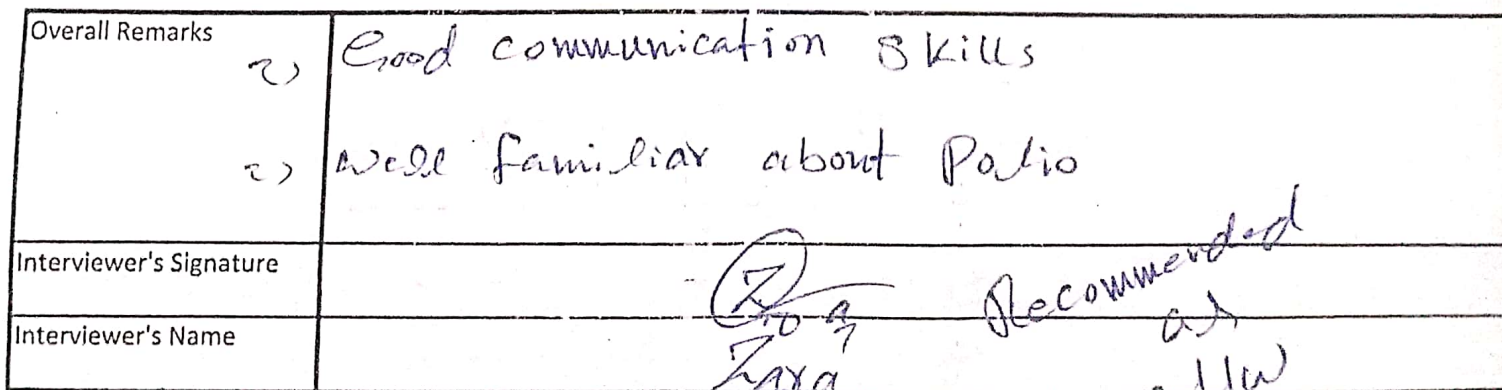 Overall Remarks
Good communication skills
well familiar about Polio
Interviewer's Signature
Recommended
as
Interviewer's Name
Zara